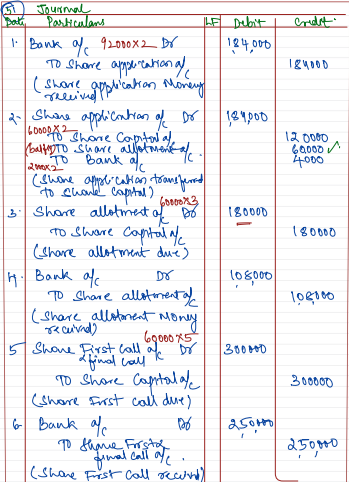 5) Journal
Date Particulars LF Debit Credit
1. Bank a/c 92000×2 Dr 184,000
To Share application a/c 184000
(Share application Money
received)
2. Share application a/c Dr 184,000
60000×2
To Share Capital a/c 120000
(bal fig) To Share allotment a/c 60000 ✓
To Bank a/c. 4000
2000×2
(Share application transferred
to Share Capital)
60000×3
3. Share allotment a/c Dr 180000
To Share Capital a/c 180000
(Share allotment due)
4. Bank a/c Dr 108,000
To Share allotment a/c 108,000
(Share allotment Money
received)
60000×5
5 Share First Call a/c Dr 300000
& final call
To Share Capital a/c 300000
(Share First Call due)
6. Bank a/c Dr 250,000
To Share First &
final Call a/c. 250,000
(Share First Call received)